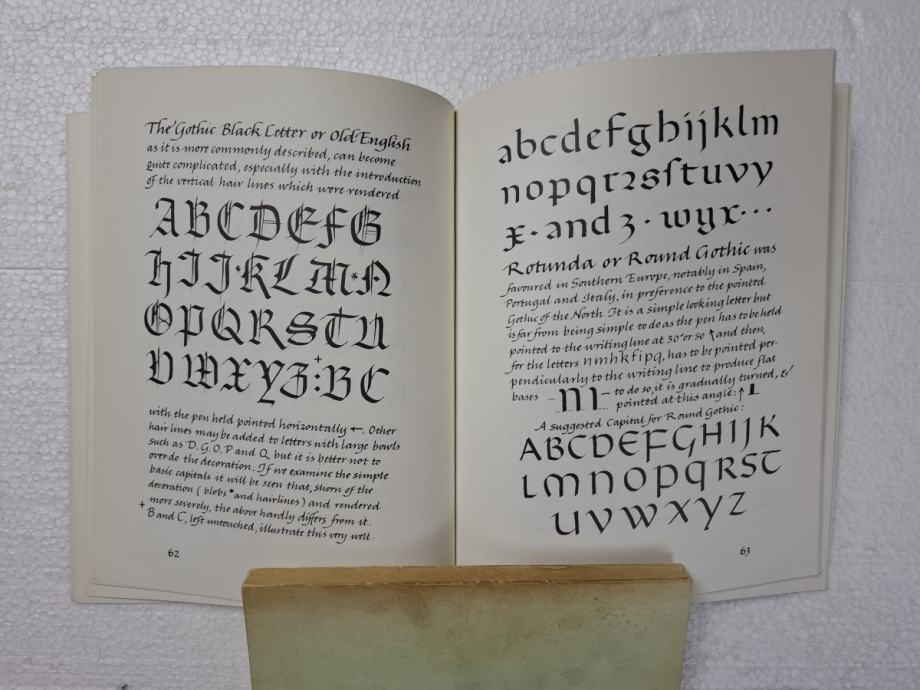 The Gothic Black Letter or Old English
as it is more commonly described, can become
quite complicated, especially with the introduction
of the vertical hair lines which were rendered
ABCDEFG
HIJ·KLM·N
OPQRSTU
VWXYZ:BC
with the pen held pointed horizontally ←. Other
hair lines may be added to letters with large bowls
such as D. G. O. P and Q but it is better not to
overdo the decoration. If we examine the simple
basic capitals it will be seen that, shorn of the
decoration (blobs and hairlines) and rendered
more severely, the above hardly differs from it.
+ B and C, left untouched, illustrate this very well.
62
abcdefghijklm
nopqrꝛsſtuvy
x · and z · wyx···
Rotunda or Round Gothic was
favoured in Southern Europe, notably in Spain,
Portugal and Italy, in preference to the pointed
Gothic of the North. It is a simple looking letter but
is far from being simple to do as the pen has to be held
pointed to the writing line at 30° or so ↖ and then,
for the letters nmhkfipq, has to be pointed per-
pendicularly to the writing line to produce flat
bases – m – to do so, it is gradually turned, &
pointed at this angle: ↑
A suggested Capital for Round Gothic:
ABCDEFGHIJK
LMNOPQRST
UVWXYZ
63